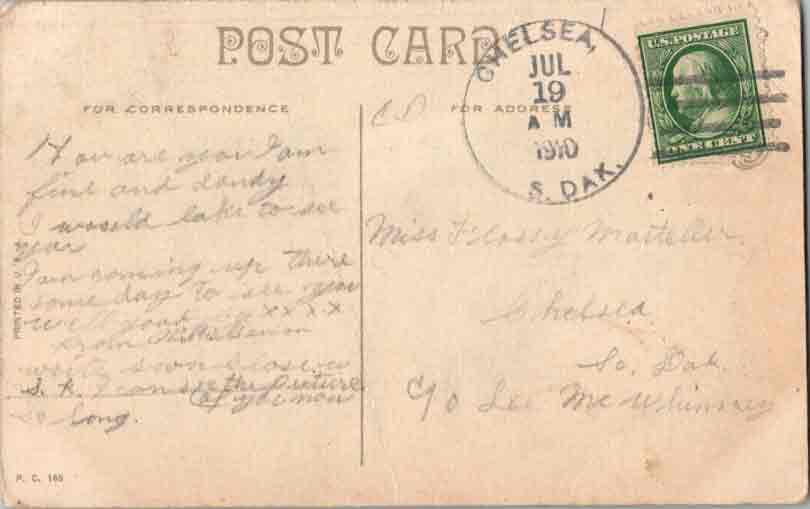 POST CARD
FOR CORRESPONDENCE
FOR ADDRESS
CHELSEA,
JUL
19
AM
1910
S. DAK.
U.S. POSTAGE
ONE CENT
How are you I am
fine and dandy
I would lake to see
you
I am coming up there
some day to see you
well good x x x x
from
write soon
S. R. I can see the picture
of you now
so long.
Miss Flossy
Chelsea
So. Dak.
C/O Lee McWhinney
PRINTED IN U.S.
P. C. 165